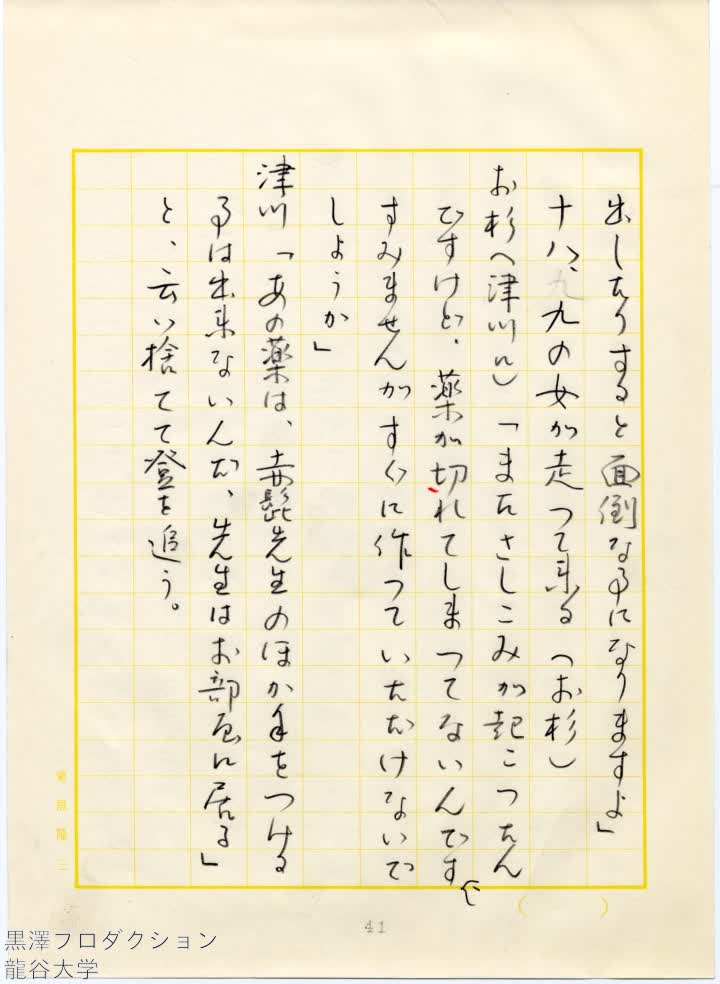 出したりすると面倒な事になりますよ」
十八、九の女が走って来る(お杉)
お杉(津川に)「またさしこみが起こったん
ですけど、薬が切れてしまってないんです
すみませんがすぐに作っていただけないで
しょうか」
津川「あの薬は、赤髭先生のほか手をつける
事は出来ないんだ、先生はお部屋に居る」
と、云い捨てて登を追う。
41
黒澤プロダクション
龍谷大学